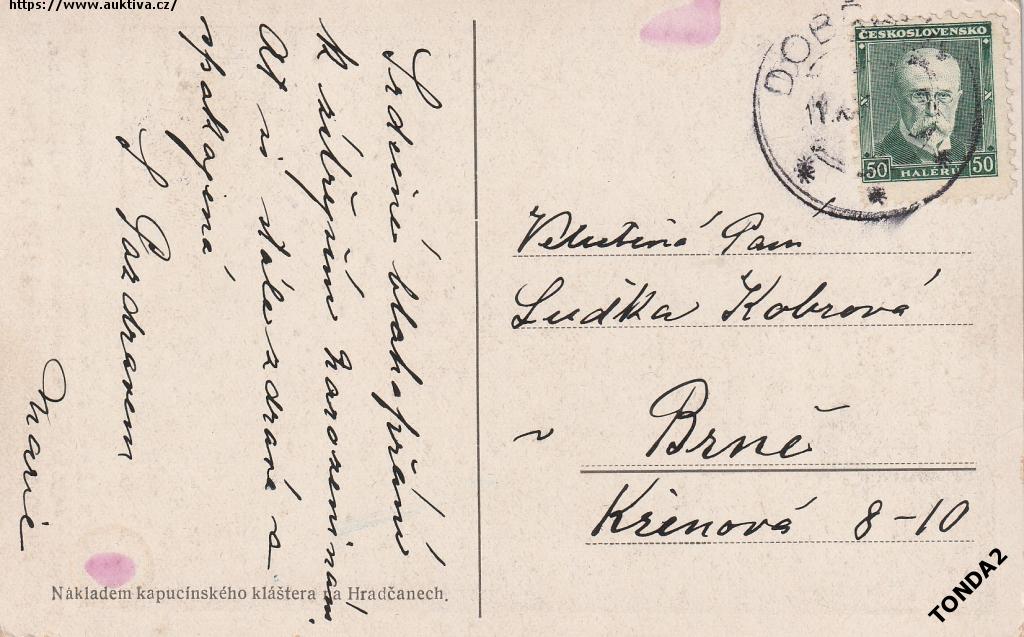 https://www.auktiva.cz/
Srdečné blahopřání
k zítřejším narozeninám.
Ať si stále zdravá a
spokojená
S Pozdravem
Marie
Nákladem kapucínského kláštera na Hradčanech.
DOBŘ
ČESKOSLOVENSKO
50 HALÉŘŮ 50
Velectěná Paní
Luďka Kobrová
v Brně
Křenová 8-10
TONDA2